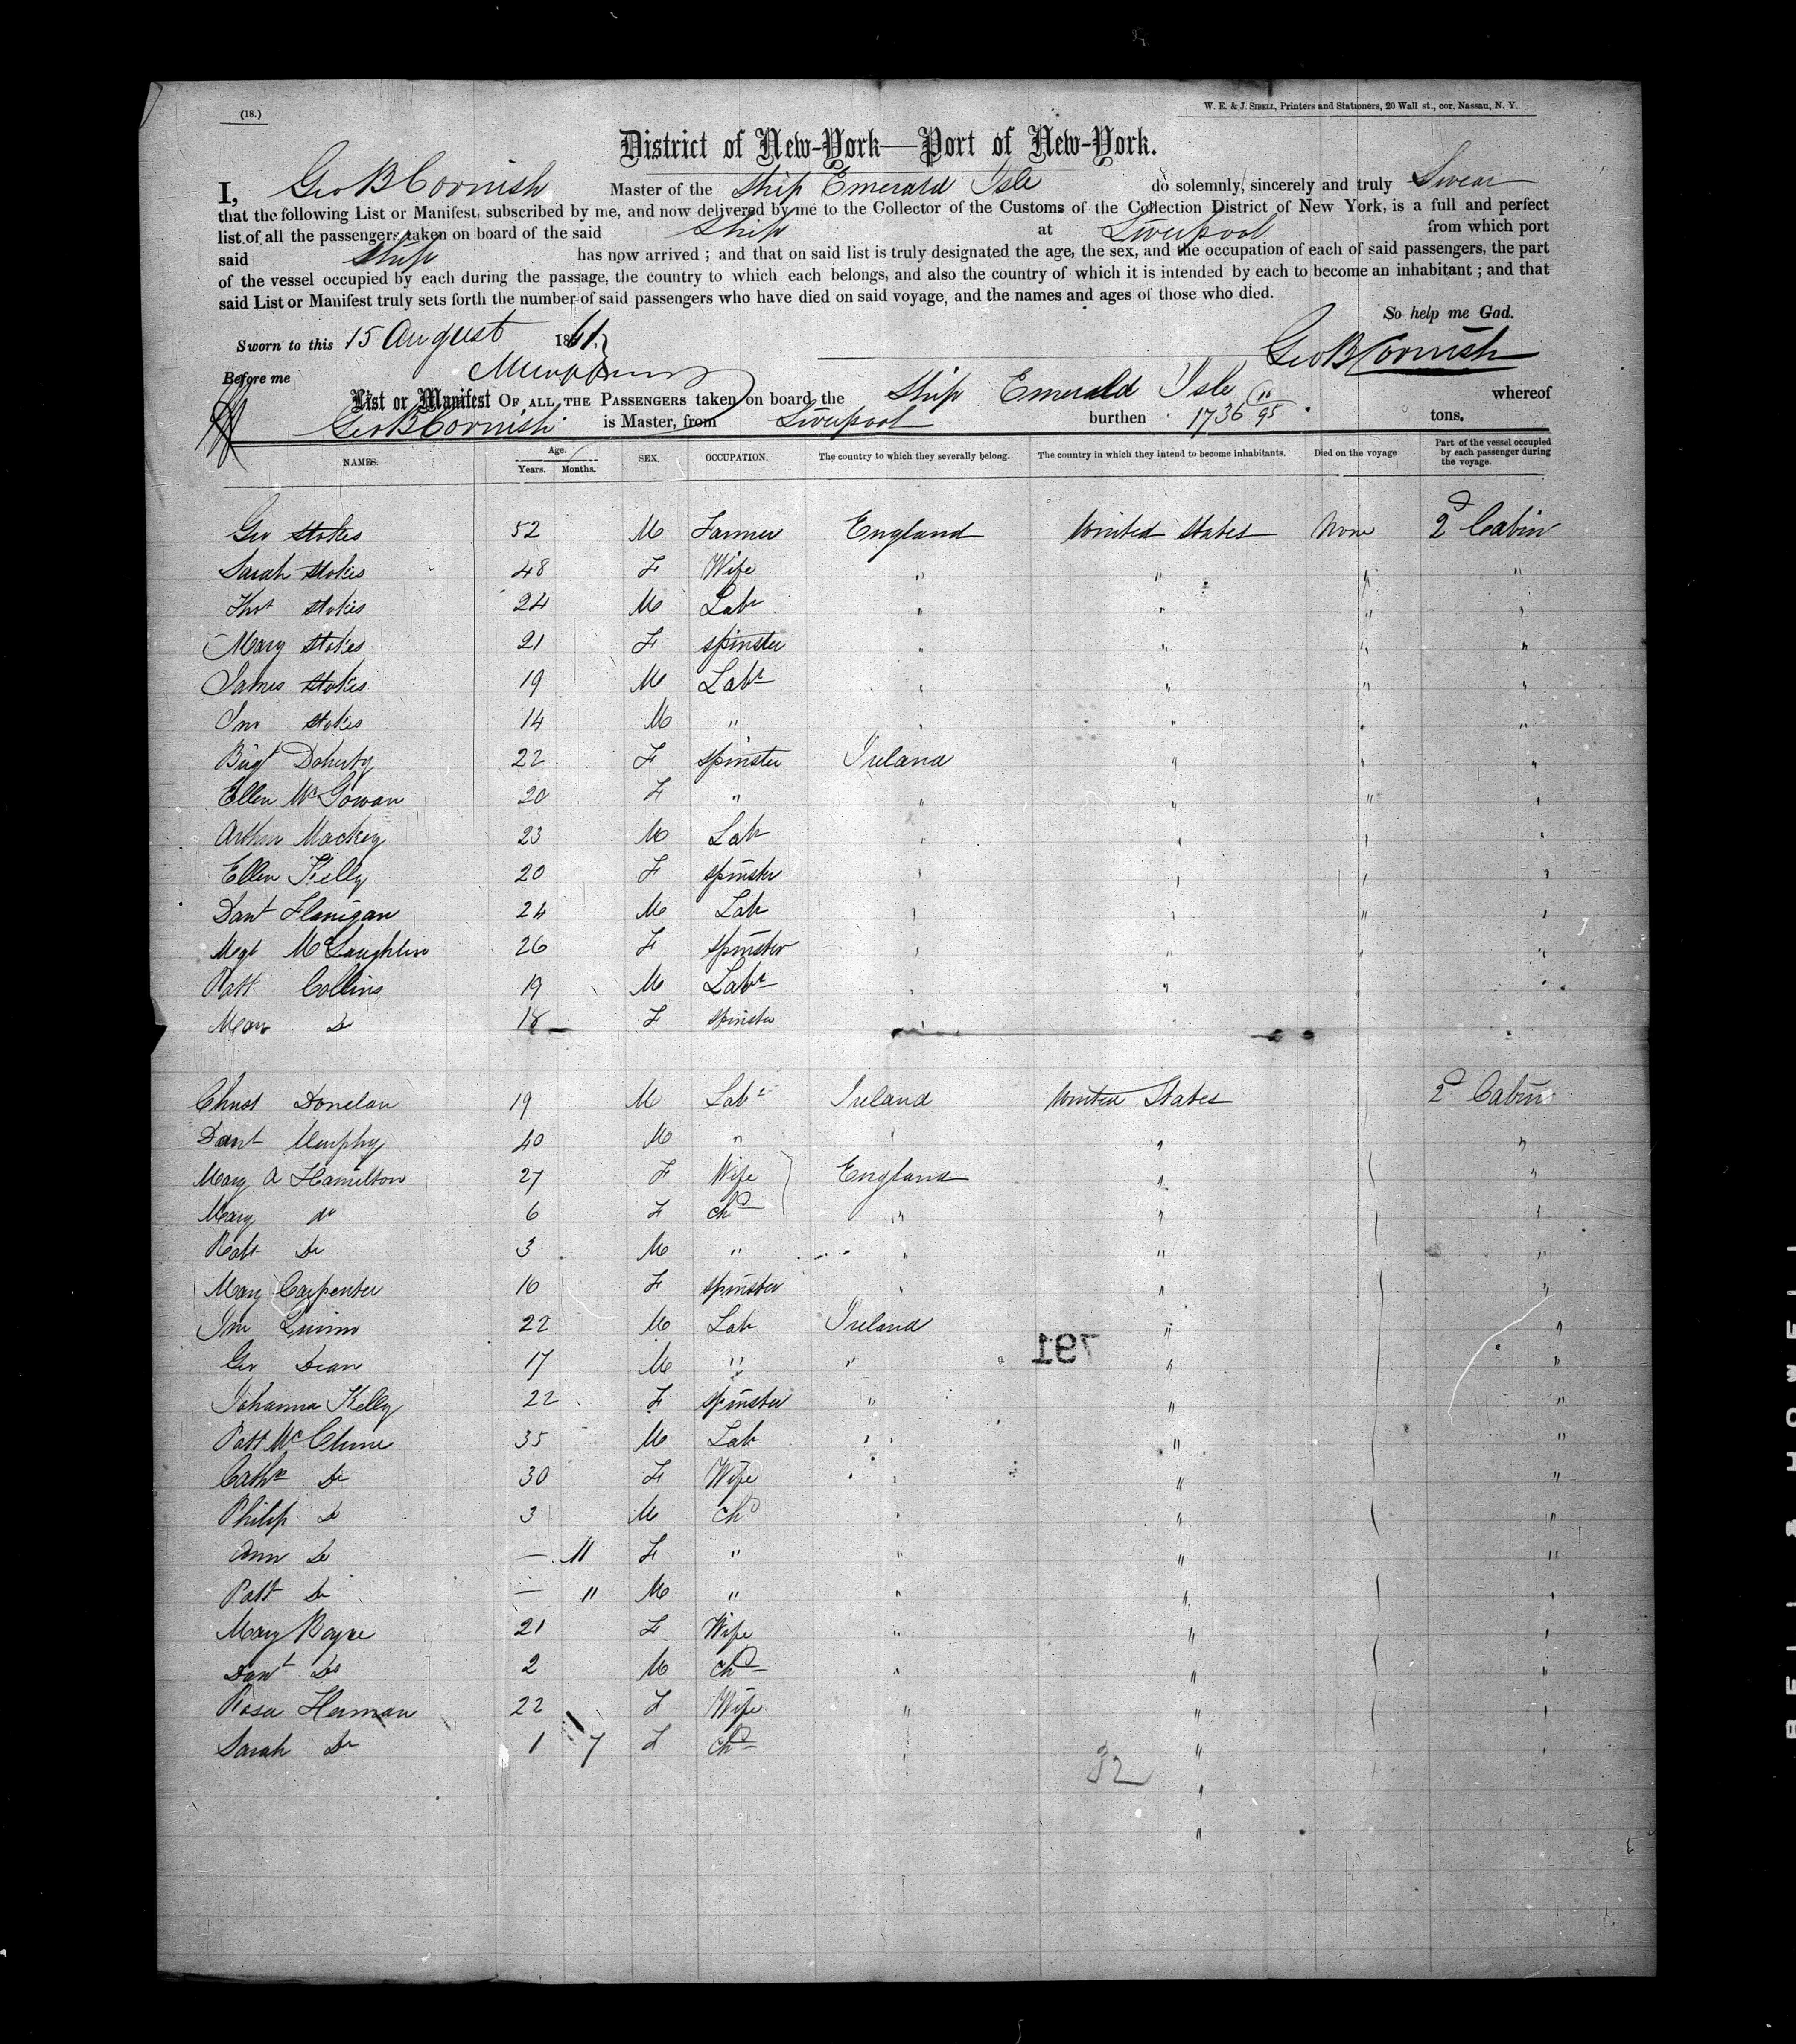 (18.)
W. E. & J. SIBELL, Printers and Stationers, 20 Wall st., cor. Nassau, N. Y.
District of New-York—Port of New-York.
I, Geo B Cornish Master of the Ship Emerald Isle do solemnly, sincerely and truly Swear
that the following List or Manifest, subscribed by me, and now delivered by me to the Collector of the Customs of the Collection District of New York, is a full and perfect
list of all the passengers taken on board of the said Ship at Liverpool from which port
said Ship has now arrived ; and that on said list is truly designated the age, the sex, and the occupation of each of said passengers, the part
of the vessel occupied by each during the passage, the country to which each belongs, and also the country of which it is intended by each to become an inhabitant ; and that
said List or Manifest truly sets forth the number of said passengers who have died on said voyage, and the names and ages of those who died.
So help me God.
Sworn to this 15 August 1861.
Geo B Cornish
Before me
List or Manifest OF ALL THE PASSENGERS taken on board the Ship Emerald Isle whereof
Geo B Cornish is Master, from Liverpool burthen 1736 11/95 tons.
NAMES. Age. Years. Months. SEX. OCCUPATION. The country to which they severally belong. The country in which they intend to become inhabitants. Died on the voyage Part of the vessel occupied by each passenger during the voyage.
Geo Stokes 52 M Farmer England United States None 2d Cabin
Sarah Stokes 48 F Wife " " " "
Thos Stokes 24 M Labr " " " "
Mary Stokes 21 F Spinster " " " "
James Stokes 19 M Labr " " " "
Jno Stokes 14 M " " " " "
Bigt Doherty 22 F Spinster Ireland " " "
Ellen McGowan 20 F " " " " "
Arthur Mackey 23 M Labr " " " "
Ellen Kelly 20 F Spinster " " " "
Danl Flanigan 24 M Labr " " " "
Mgt McLaughlin 26 F Spinster " " " "
Patt Collins 19 M Labr " " " "
Mary Do 18 F Spinster "
Christ Donelan 19 M Labr Ireland United States 2d Cabin
Danl Murphy 40 M " " " "
Mary A Hamilton 27 F Wife England " "
Mary do 6 F Chd " " "
Robt Do 3 M " " " "
Mary Carpenter 16 F Spinster " " "
Jno Quinn 22 M Labr Ireland " "
Geo Dean 17 M " " " "
791
Johanna Kelly 22 F Spinster " " "
Patt McClune 35 M Labr " " "
Cathe Do 30 F Wife " " "
Philip Do 3 M Chd " " "
Ann Do — 11 F " " " "
Patt Do — " M " " " "
Mary Boyce 21 F Wife " " "
Danl Do 2 M Chd " " "
Rosa Herman 22 F Wife " " "
Sarah Do 1 7 F Chd " " "
32 "
"
BELL & HOWELL